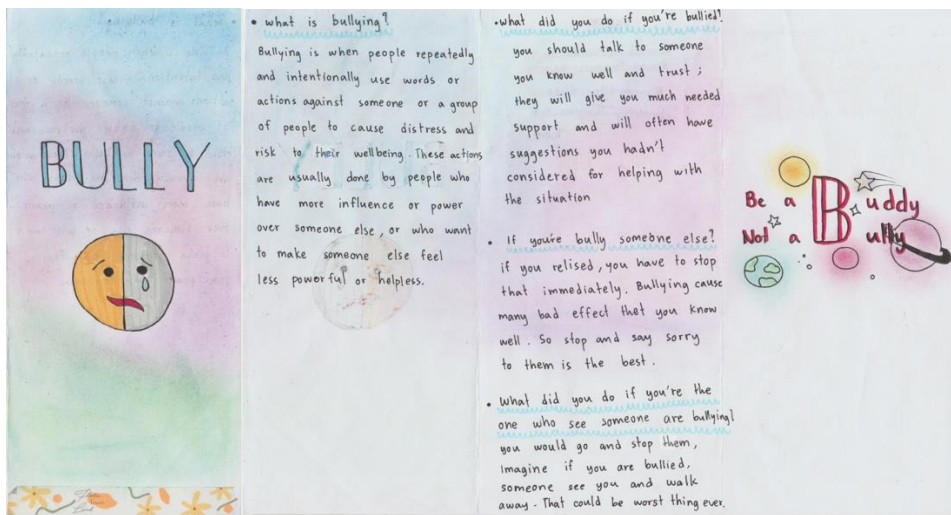 BULLY
• what is bullying?
Bullying is when people repeatedly
and intentionally use words or
actions against someone or a group
of people to cause distress and
risk to their wellbeing. These actions
are usually done by people who
have more influence or power
over someone else, or who want
to make someone else feel
less powerful or helpless.
• what did you do if you're bullied?
you should talk to someone
you know well and trust ;
they will give you much needed
support and will often have
suggestions you hadn't
considered for helping with
the situation
• If you're bully someone else?
if you relised, you have to stop
that immediately. Bullying cause
many bad effect thet you know
well. So stop and say sorry
to them is the best.
• What did you do if you're the
one who see someone are bullying?
you would go and stop them,
Imagine if you are bullied,
someone see you and walk
away. That could be worst thing ever.
Be a Buddy
Not a Bully